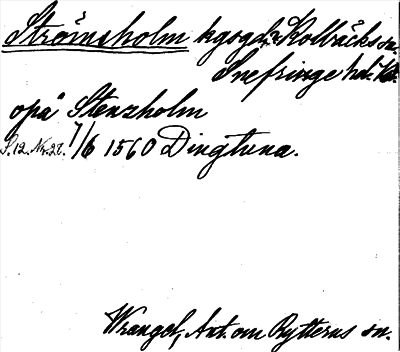 Strömsholm kgsgd, Kolbäcks sn.
Snefringe hd.
opå Stenzholm
7/6 1560 Dingtuna.
Wrangel, Ant. om Rytterns sn.